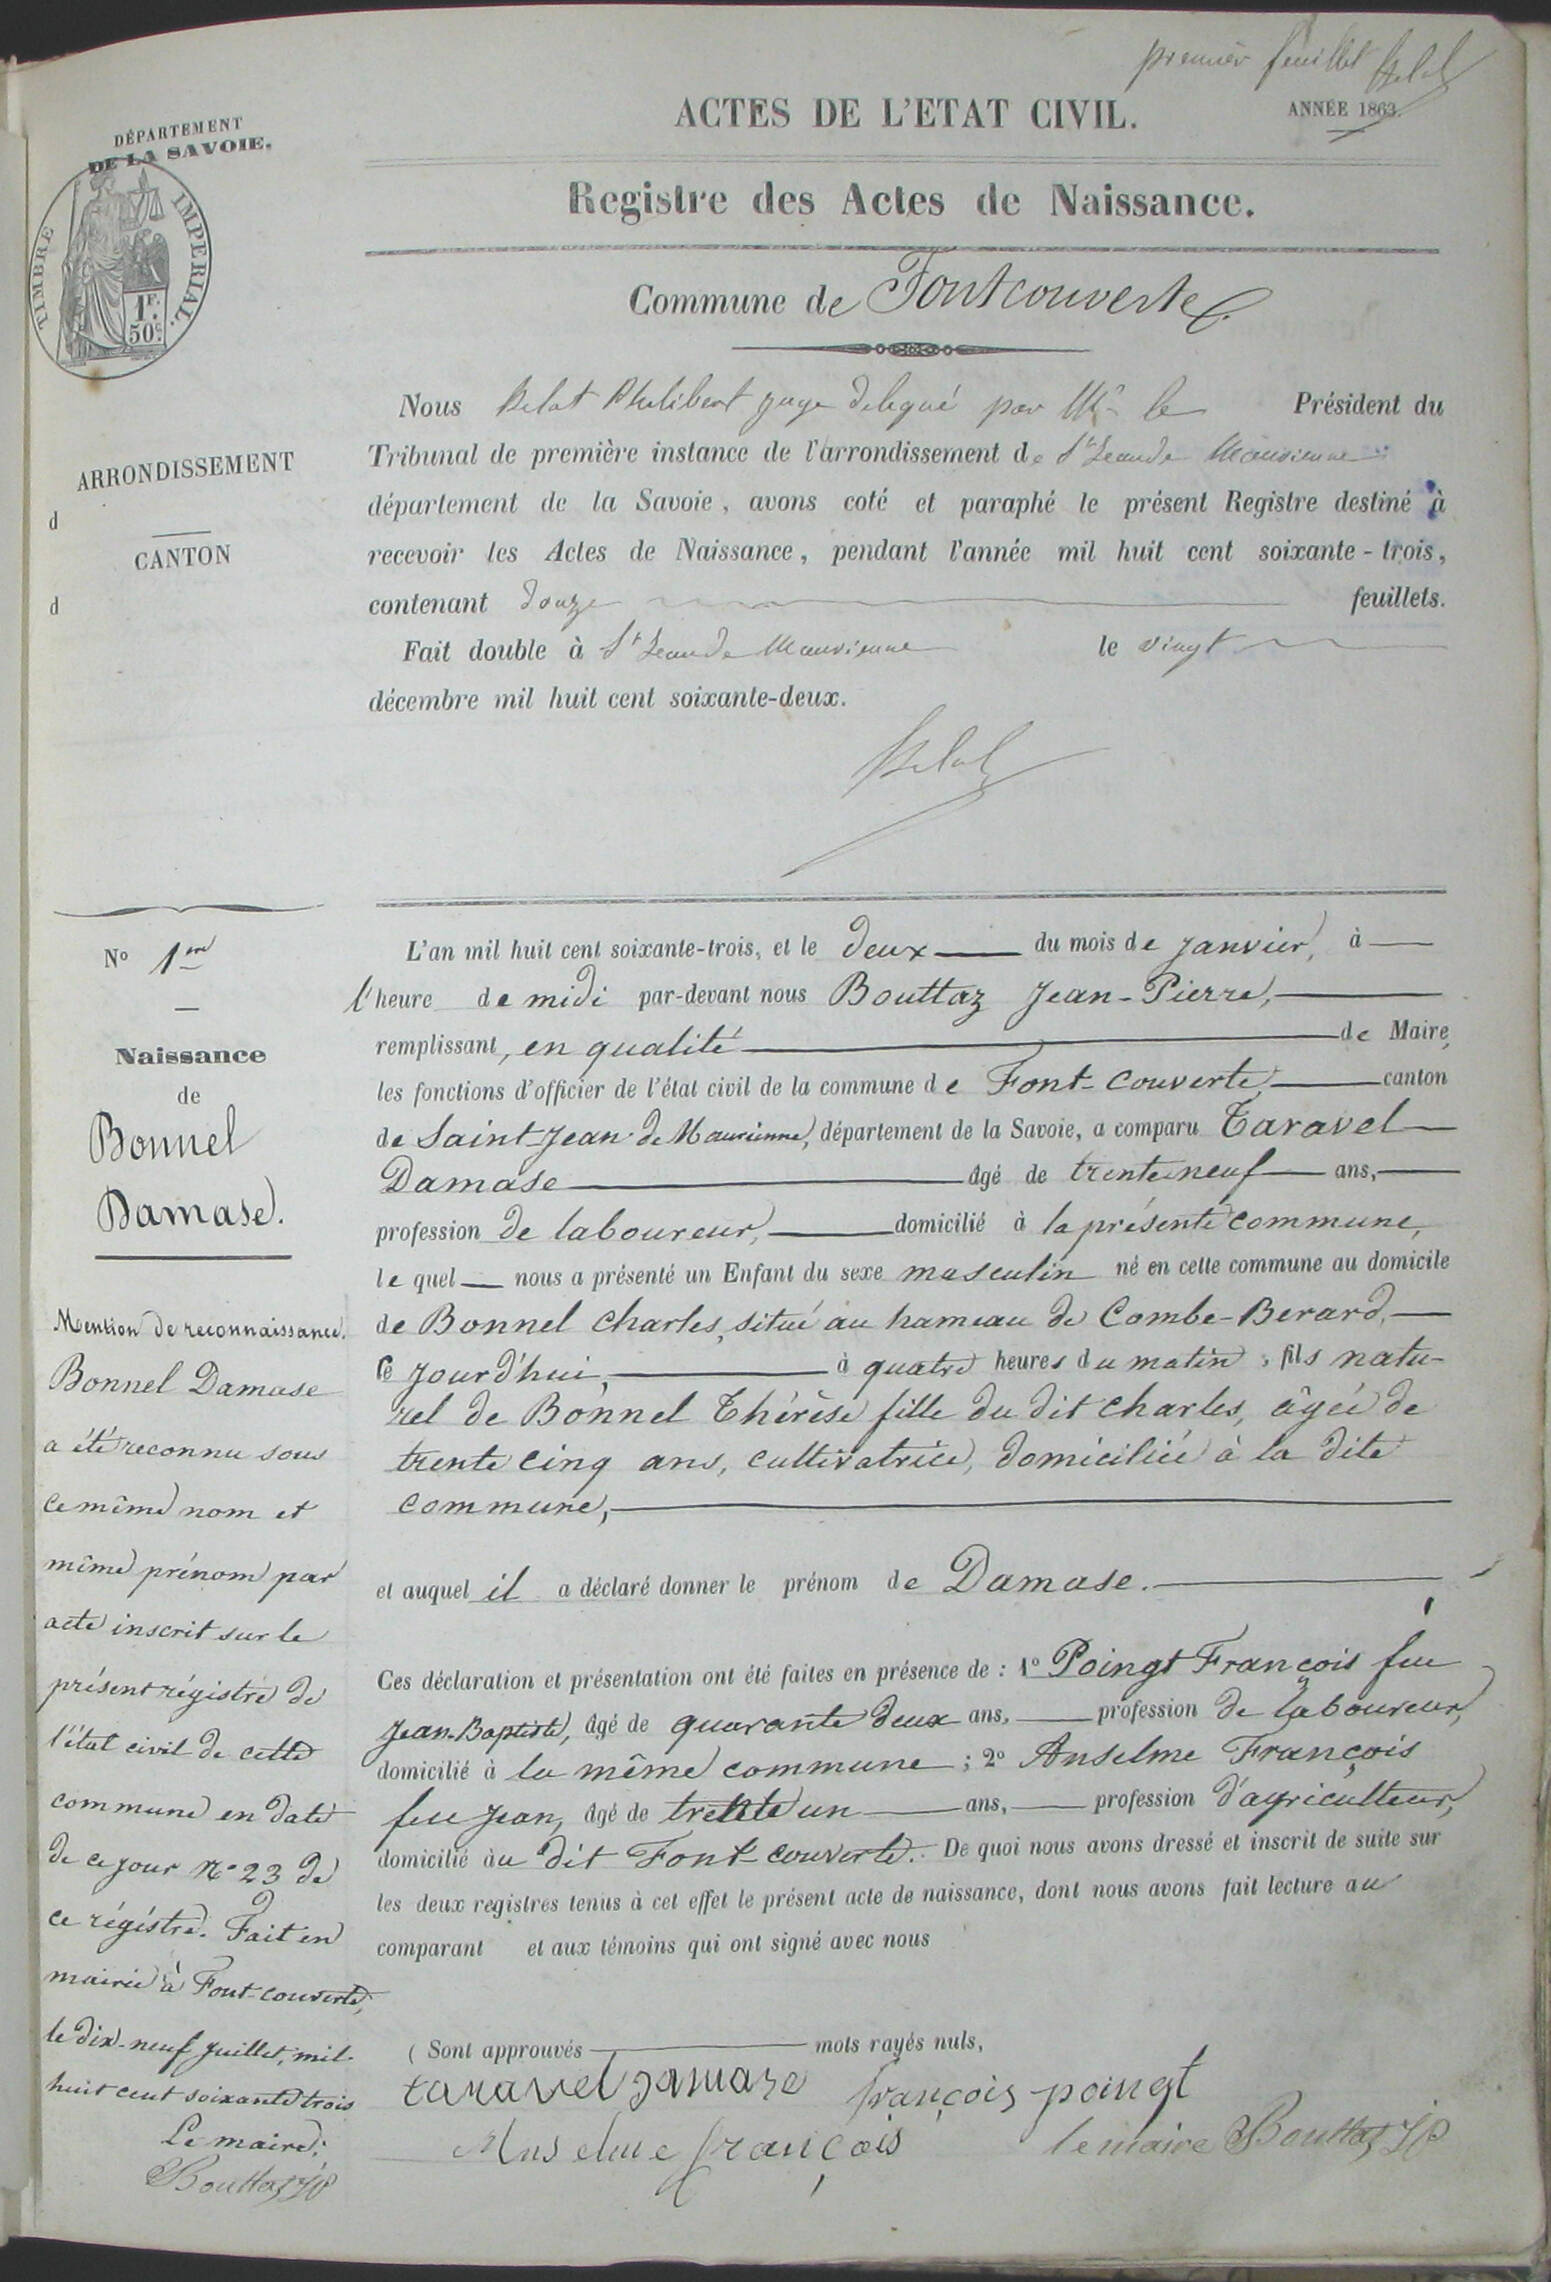 premier feuillet
ACTES DE L'ETAT CIVIL.
ANNÉE 1863.
DÉPARTEMENT
DE LA SAVOIE.
TIMBRE IMPERIAL.
1F.
50c.
Registre des Actes de Naissance.
Commune de Fontcouverte
ARRONDISSEMENT
d
CANTON
d
Nous Philibert juge délégué par Mr le Président du
Tribunal de première instance de l'arrondissement de St Jean de Maurienne
département de la Savoie, avons coté et paraphé le présent Registre destiné à
recevoir les Actes de Naissance, pendant l'année mil huit cent soixante-trois,
contenant douze feuillets.
Fait double à St Jean de Maurienne le vingt
décembre mil huit cent soixante-deux.
No 1er
Naissance
de
Bonnel
Damase.
Mention de reconnaissance.
Bonnel Damase
a été reconnu sous
ce même nom et
même prénom par
acte inscrit sur le
présent régistre de
l'état civil de cette
commune en date
de ce jour No 23 de
ce régistre. Fait en
mairie à Font-couverte,
le dix-neuf juillet, mil-
huit cent soixante trois
Le maire:
Bouttaz JP
L'an mil huit cent soixante-trois, et le deux du mois de janvier, à
l'heure de midi par-devant nous Bouttaz Jean-Pierre,
remplissant, en qualité de Maire,
les fonctions d'officier de l'état civil de la commune de Font-couverte, canton
de Saint Jean de Maurienne, département de la Savoie, a comparu Taravel
Damase âgé de trente neuf ans,
profession de laboureur, domicilié à la présente commune,
le quel nous a présenté un Enfant du sexe masculin né en cette commune au domicile
de Bonnel Charles, situé au hameau de Combe-Berard,
ce jourd'hui, à quatre heures du matin, fils natu-
rel de Bonnel Thérèse fille du dit Charles, âgée de
trente cinq ans, cultivatrice, domiciliée à la dite
commune,
et auquel il a déclaré donner le prénom de Damase.
Ces déclaration et présentation ont été faites en présence de : 1o Poingt François feu
Jean-Baptiste, âgé de quarante deux ans, profession de laboureur,
domicilié à la même commune ; 2o Anselme François
feu Jean, âgé de trente un ans, profession d'agriculteur,
domicilié au dit Font-couverte. De quoi nous avons dressé et inscrit de suite sur
les deux registres tenus à cet effet le présent acte de naissance, dont nous avons fait lecture au
comparant et aux témoins qui ont signé avec nous
( Sont approuvés mots rayés nuls,
taravel damase françois poingt
Anselme françois le maire Bouttaz JP